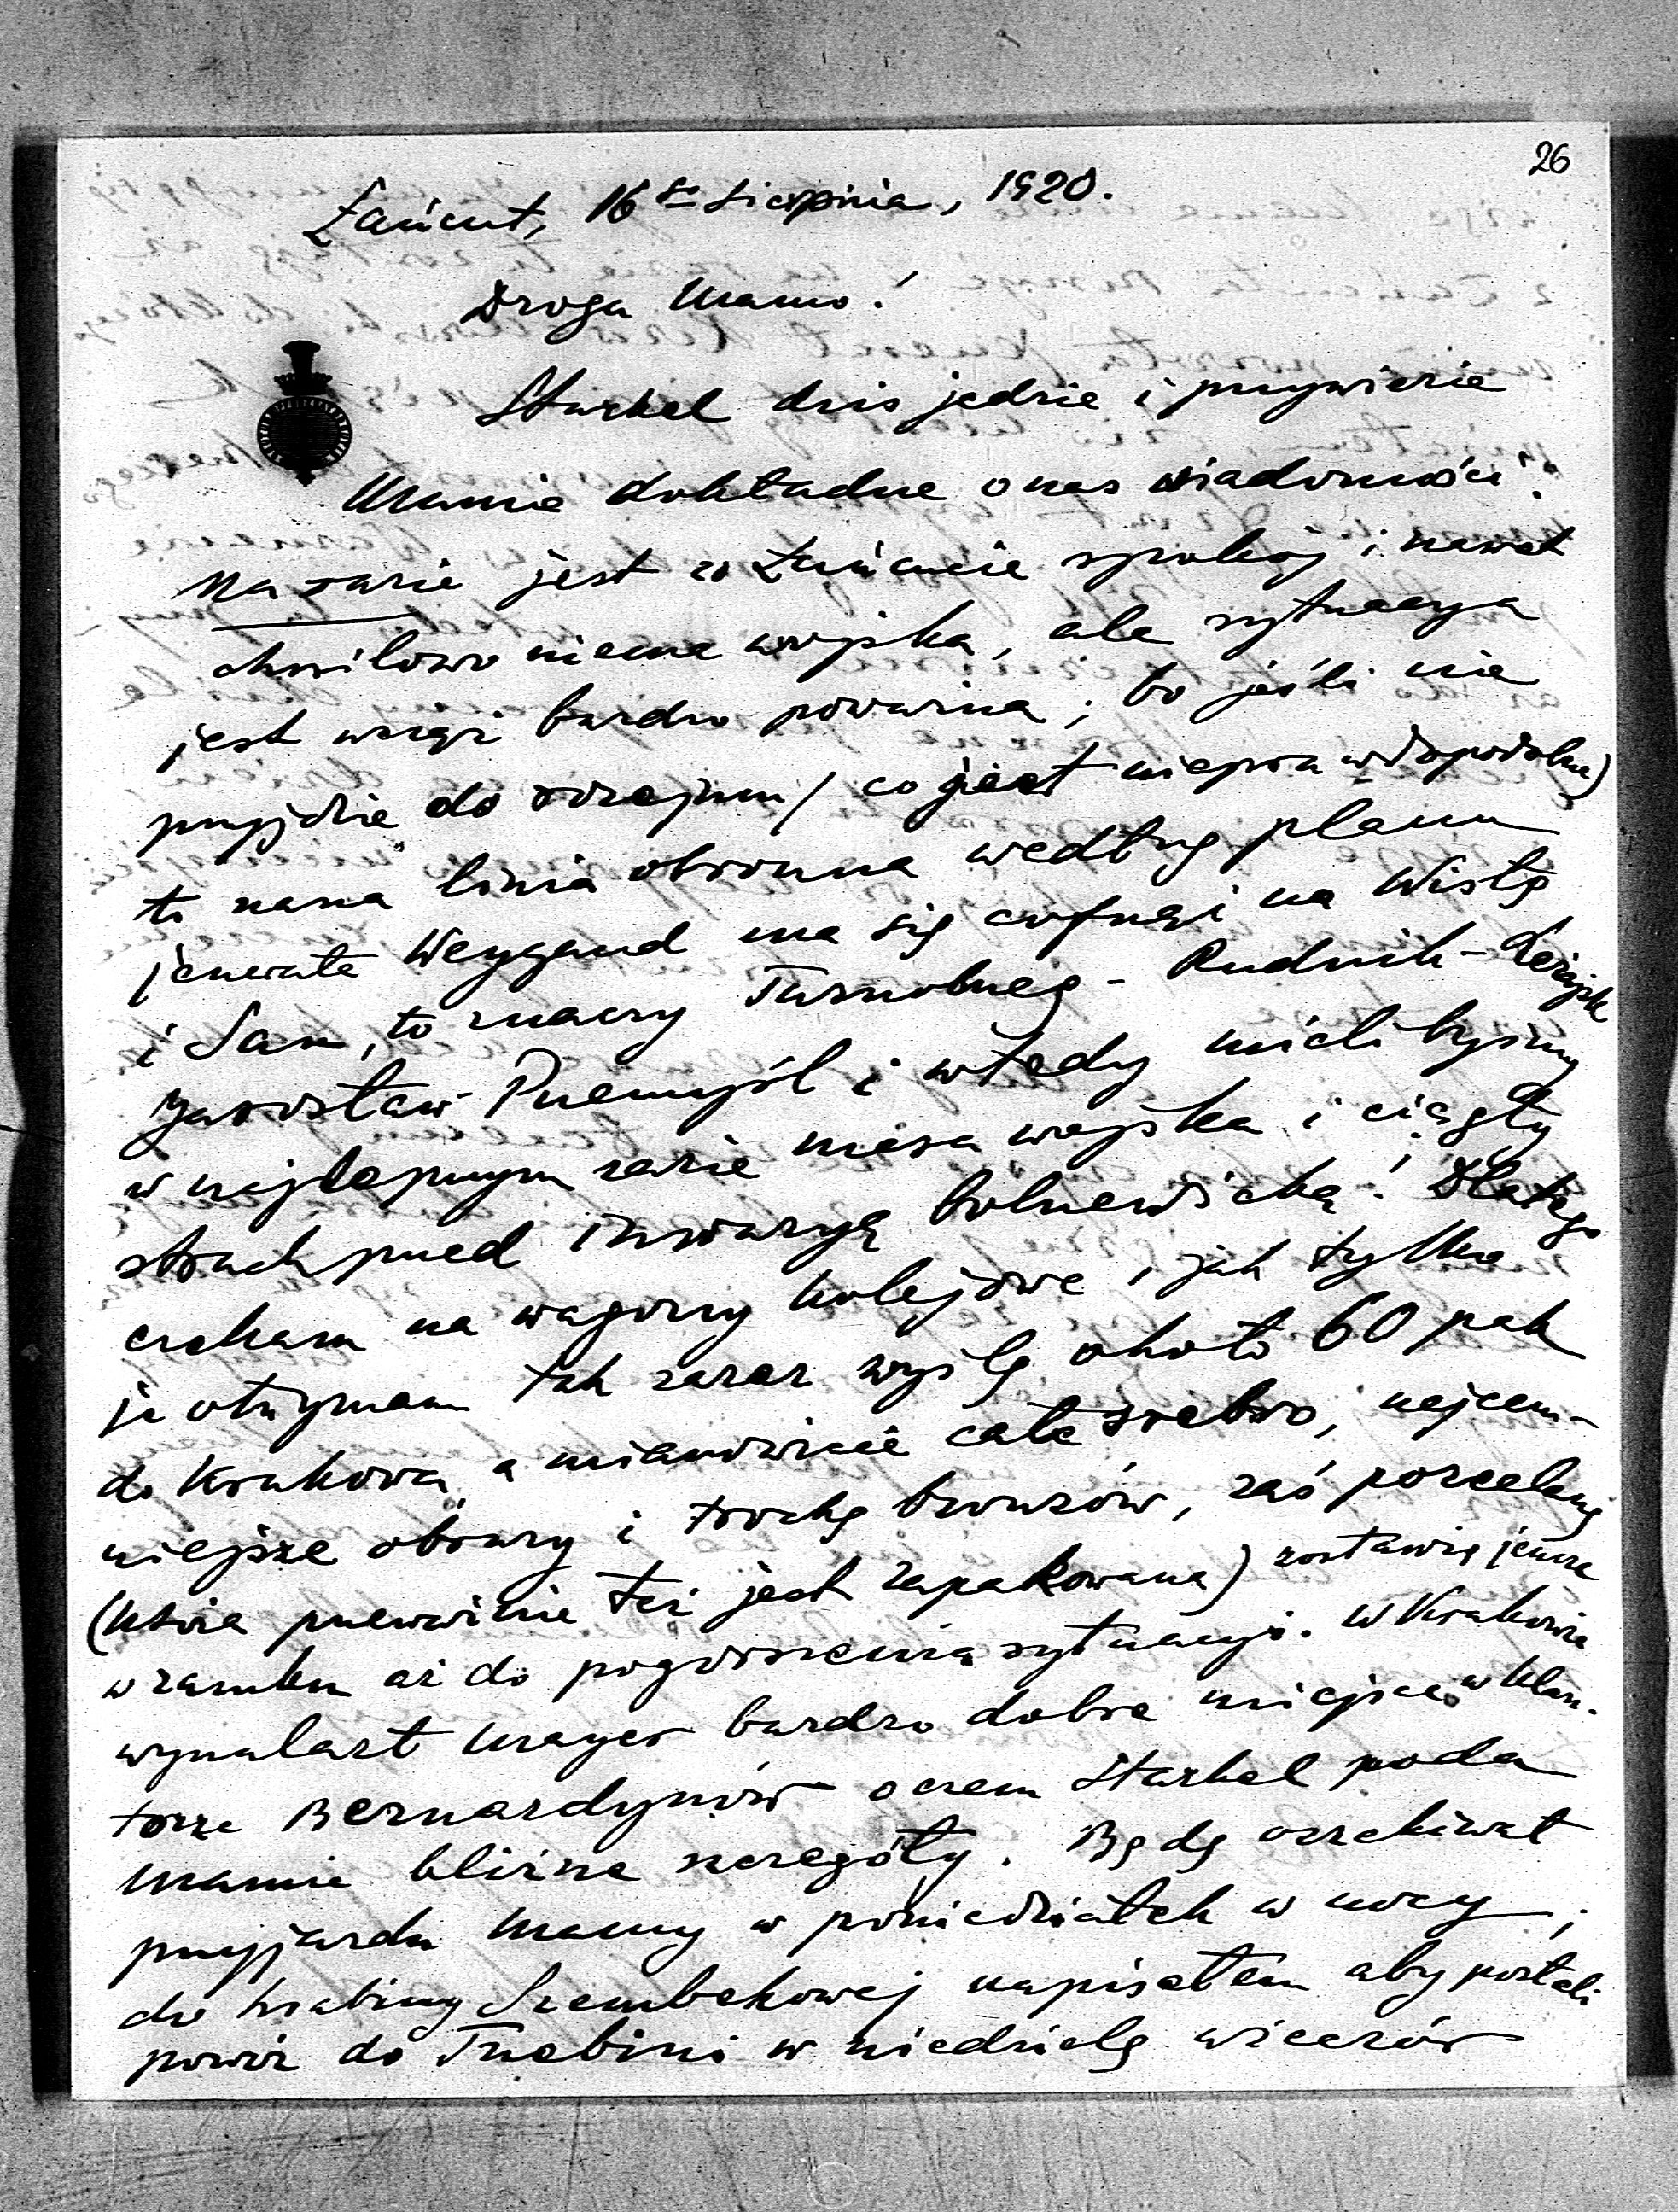 26
Łańcut, 16go Sierpnia, 1920.
Droga Mamo!
Starkel dziś jedzie i przywiezie
Mamie dokładne o nas wiadomości.
Na razie jest w Łańcucie spokój i nawet
chwilowo niema wojska, ale sytuacya
jest wciąż bardzo poważna; bo jeśli nie
przyjdzie do rozejmu (co jest nieprawdopodobne)
to nasza linia obronna według planu
jenerała Weygand ma się cofnąć na Wisłę
i San, to znaczy Tarnobrzeg - Rudnik - Leżajsk
Jarosław - Przemyśl i wtedy mieli byśmy
w najlepszym razie masa wojska i ciągły
strach przed inwazyą bolszewicką! Dlatego
czekam na wagony kolejowe i jak tylko
je otrzymam tak zaraz wyślę około 60 pak
do Krakowa a mianowicie całe srebro, najcen-
niejsze obrazy i trochę bronzów, zaś porcelanę
(która przeważnie też jest zapakowana) zostawię jeszcze
w zamku aż do pogorszenia sytuacyi. W Krakowie
wynalazł Mayer bardzo dobre miejsce w klasz-
torze Bernardynów o czem Starkel poda
Mamie bliższe szczegóły. Będę oczekiwał
przyjazdu Mamy w poniedziałek w nocy;
do hrabiny Szembekowej napisałem aby posłali
powóz do Trzebini w niedzielę wieczór